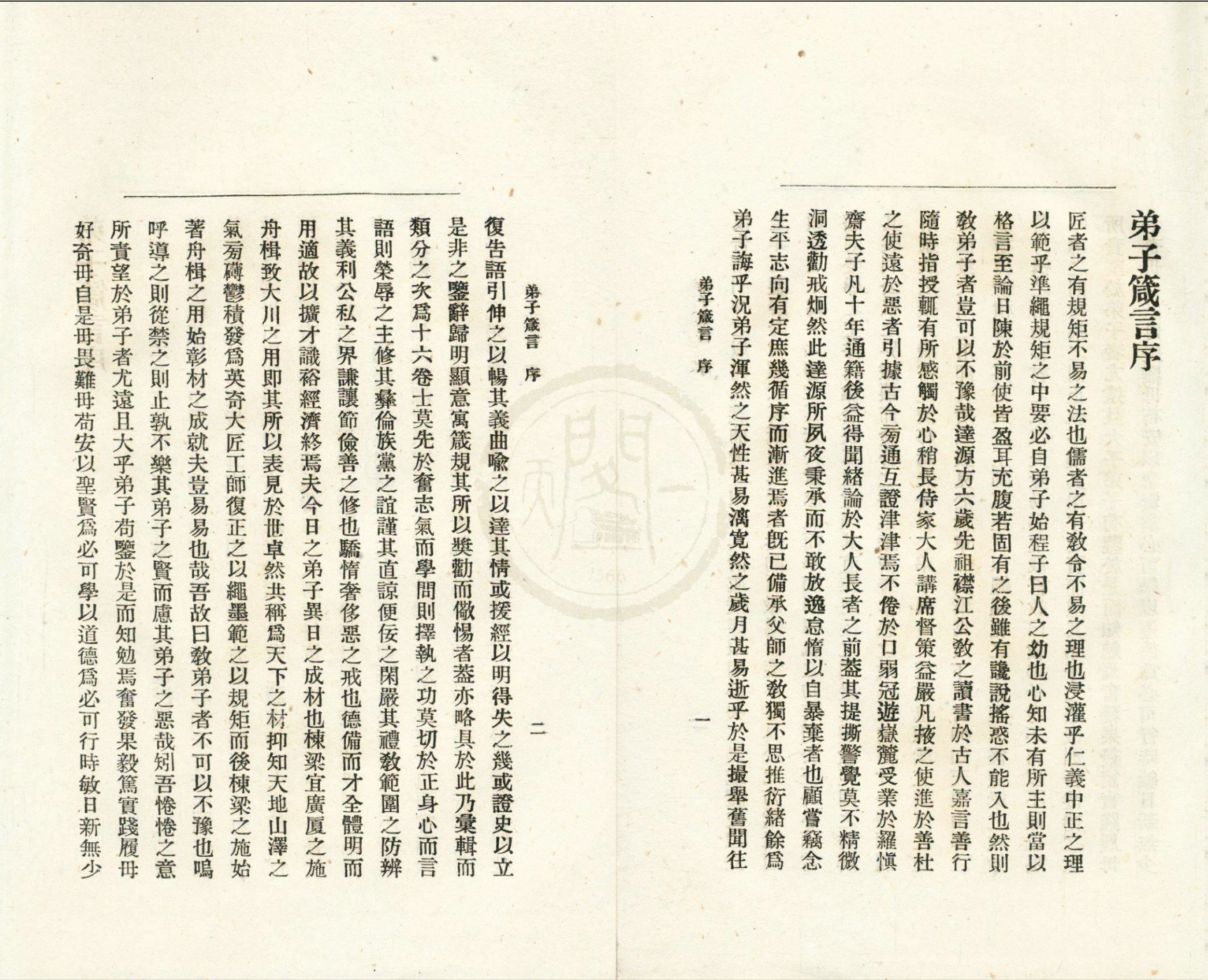 弟子箴言序
匠者之有規矩不易之法也儒者之有敎令不易之理也浸灌乎仁義中正之理
以範乎準繩規矩之中要必自弟子始程子曰人之幼也心知未有所主則當以
格言至論日陳於前使皆盈耳充腹若固有之後雖有讒說搖惑不能入也然則
敎弟子者豈可以不豫哉達源方六歲先祖襟江公敎之讀書於古人嘉言善行
隨時指授輒有所感觸於心稍長侍家大人講席督策益嚴凡掖之使進於善杜
之使遠於惡者引據古今旁通互證津津焉不倦於口弱冠遊嶽麓受業於羅愼
齋夫子凡十年通籍後益得聞緒論於大人長者之前葢其提撕警覺莫不精微
洞透勸戒炯然此達源所夙夜秉承而不敢放逸怠惰以自暴棄者也顧嘗竊念
生平志向有定庶幾循序而漸進焉者旣已備承父師之敎獨不思推衍緒餘爲
弟子誨乎況弟子渾然之天性甚易漓寬然之歲月甚易逝乎於是撮舉舊聞往
弟子箴言 序
一
弟子箴言 序
二
復告語引伸之以暢其義曲喩之以達其情或援經以明得失之幾或證史以立
是非之鑒辭歸明顯意寓箴規其所以獎勸而儆惕者葢亦略具於此乃彙輯而
類分之次爲十六卷士莫先於奮志氣而學問則擇執之功莫切於正身心而言
語則榮辱之主修其彝倫族黨之誼謹其直諒便佞之閑嚴其禮敎範圍之防辨
其義利公私之界謙讓節儉善之修也驕惰奢侈惡之戒也德備而才全體明而
用適故以擴才識裕經濟終焉夫今日之弟子異日之成材也棟梁宜廣厦之施
舟楫致大川之用即其所以表見於世卓然共稱爲天下之材抑知天地山澤之
氣旁礴鬱積發爲英奇大匠工師復正之以繩墨範之以規矩而後棟梁之施始
著舟楫之用始彰材之成就夫豈易易也哉吾故曰敎弟子者不可以不豫也嗚
呼導之則從禁之則止孰不樂其弟子之賢而慮其弟子之惡哉矧吾惓惓之意
所責望於弟子者尤遠且大乎弟子苟鑒於是而知勉焉奮發果毅篤實踐履毋
好奇毋自是毋畏難毋苟安以聖賢爲必可學以道德爲必可行時敏日新無少